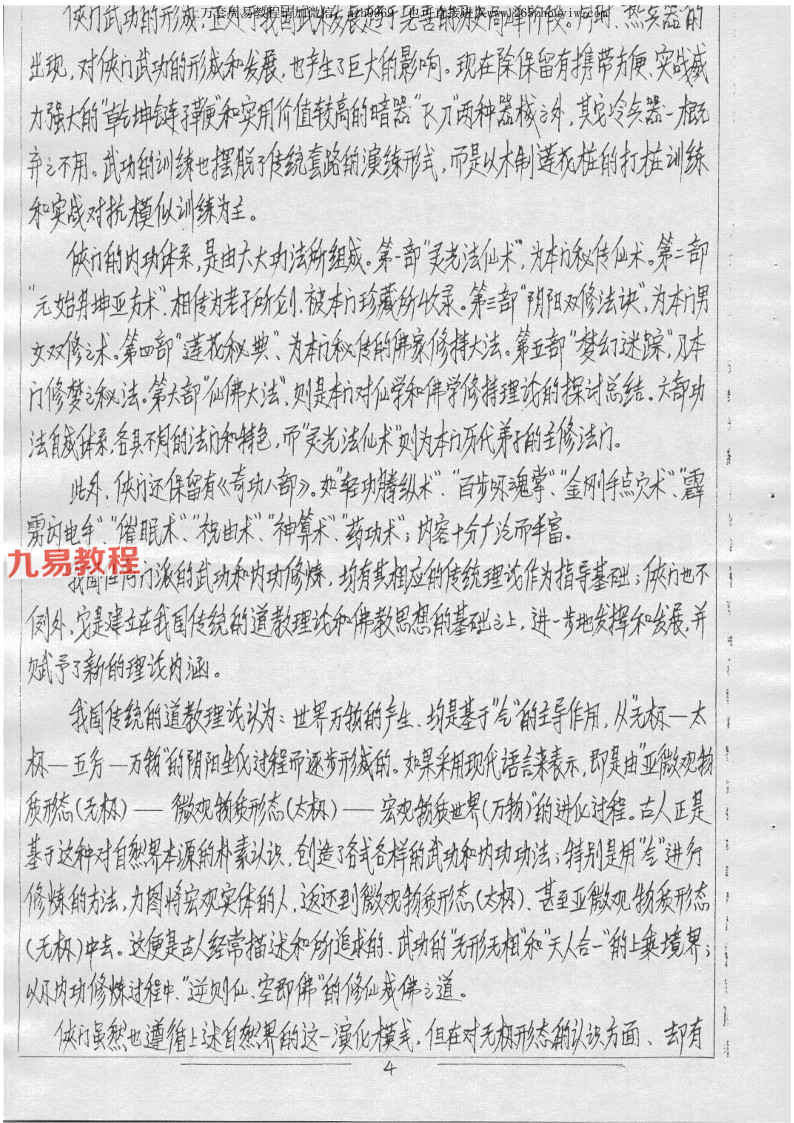 侠门武功的形成,正处于我国武术发展
出现,对侠门武功的形成和发展,也产生了巨大的影响。现在除保留有携带方便、实战威
力强大的"乾坤链子鞭"和实用价值较高的暗器"飞刀"两种器械之外,其它冷兵器一概
弃之不用。武功的训练也摆脱了传统套路的演练形式,而是以木制莲花桩的打桩训练
和实战对抗模似训练为主。
侠门的内功体系,是由六大功法所组成。第一部"灵光法仙术",为本门秘传仙术。第二部
"元始其坤亚方术",相传为老子所创,被本门珍藏所收录。第三部"阴阳双修法诀",为本门男
女双修之术。第四部"莲花秘典"、为本门秘传的佛家修持大法。第五部"梦幻迷踪",乃本
门修梦之秘法。第六部"仙佛大法",则是本门对仙学和佛学修持理论的探讨总结。六部功
法自成体系,各具不同的法门和特色,而"灵光法仙术"则为本门历代弟子的主修法门。
此外,侠门还保留有《奇功八部》。如"轻功腾纵术"、"百步呼魂掌"、"金刚手点穴术"、"霹
雳闪电手"、"催眠术"、"祝由术"、"神算术"、"药功术";内容十分广泛而丰富。
九易教程
我国任何门派的武功和内功修炼,均有其相应的传统理论作为指导基础;侠门也不
例外,它是建立在我国传统的道教理论和佛教思想的基础之上,进一步地发挥和发展,并
赋予了新的理论内涵。
我国传统的道教理论认为:世界万物的产生、均是基于"气"的主导作用,从"无极—太
极—五行—万物"的阴阳生化过程而逐步形成的。如果采用现代语言来表示,即是由"亚微观物
质形态(无极)——微观物质形态(太极)——宏观物质世界(万物)"的进化过程。古人正是
基于这种对自然界本源的朴素认识,创造了各式各样的武功和内功功法;特别是用"气"进行
修炼的方法,力图将宏观实体的人,返还到微观物质形态(太极)、甚至亚微观物质形态
(无极)中去。这便是古人经常描述和所追求的、武功的"无形无相"和"天人合一"的上乘境界;
以及内功修炼过程中、"逆则仙、空即佛"的修仙成佛之道。
侠门虽然也遵循上述自然界的这一演化模式,但在对无极形态的认识方面、却有
4